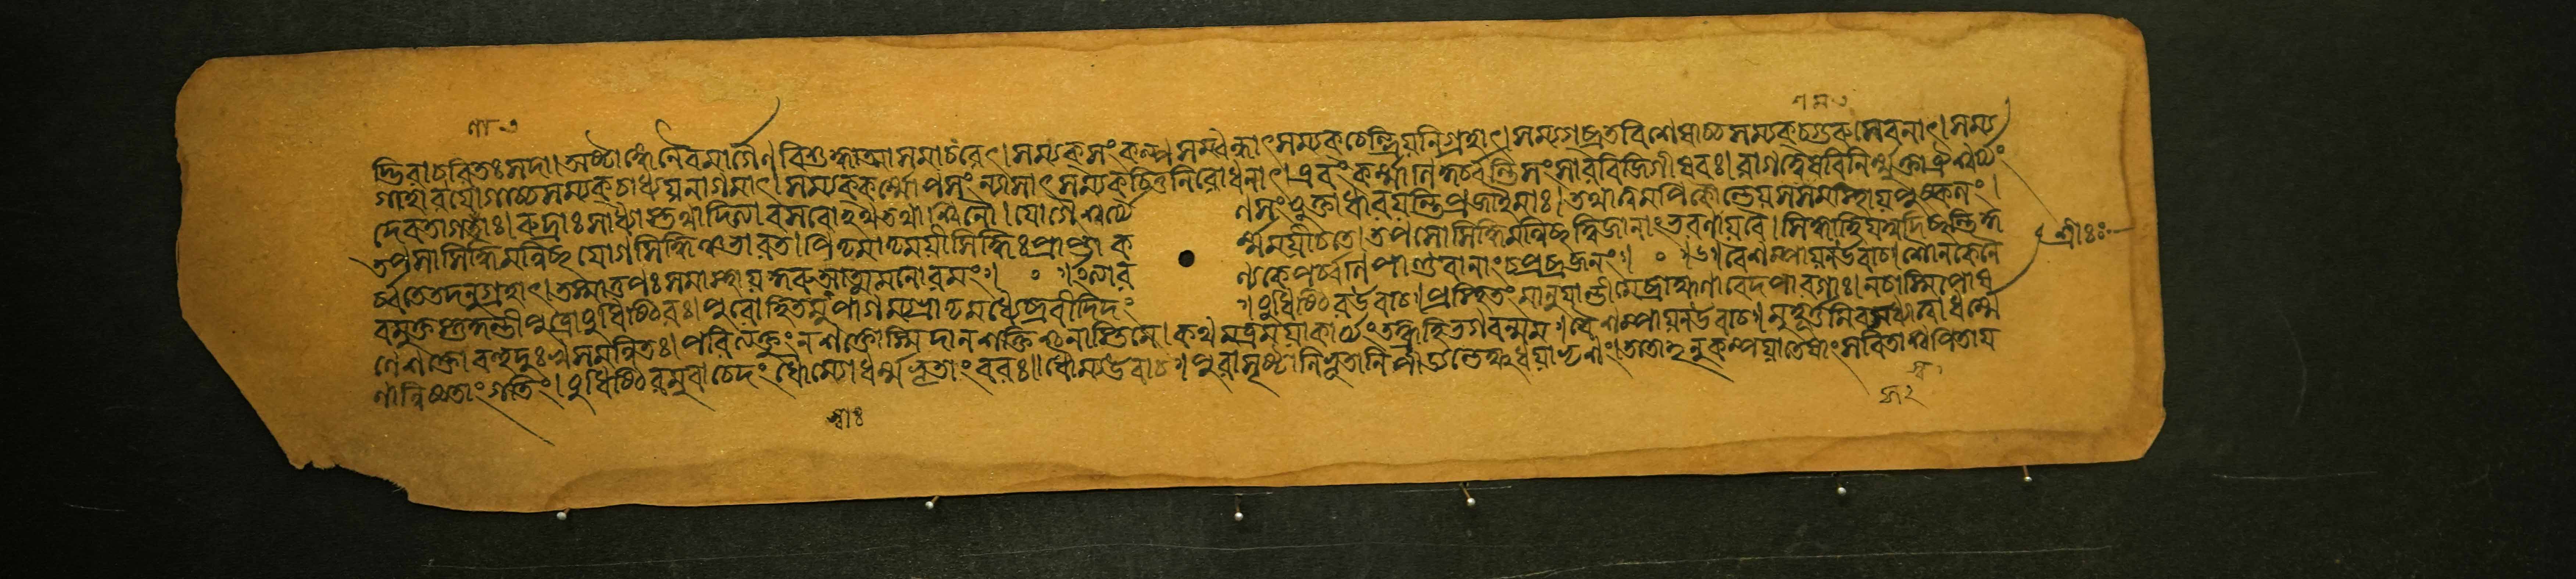 দ্ভিরাচরিতঃ সদা। অষ্টাঙ্গেনৈব মার্গেণ বিশুদ্ধাত্মা সমাচরেৎ। সম্যক্ সংকল্পসম্বন্ধাৎ সম্যক্ চেন্দ্রিয়নিগ্রহাৎ। সম্যগ্ব্রতবিশেষাচ্চ সম্যক্ চ গুরুসেবনাৎ। সম্য
গাহারযোগাচ্চ সম্যক্ চাধ্যয়নাগমাৎ। সম্যক্ কর্ম্মোপসংন্যাসাৎ সম্যক্ চিত্তনিরোধনাৎ। এবং কর্ম্মাণি কুর্ব্বন্তি সংসারবিজিগীষবঃ। রাগদ্বেষবিনির্ম্মুক্তা ঐশ্বর্য্যং
দেবতা গতাঃ। রুদ্রাঃ সাধ্যাস্তথাদিত্যা বসবোঽথ তথাশ্বিনৌ। যোগৈশ্বর্য্যেণ সংযুক্তা ধারয়ন্তি প্রজা ইমাঃ। তথা ত্বমপি কৌন্তেয় সমমাস্থায় পুষ্কলং।
তপসা সিদ্ধিমন্বিচ্ছ যোগসিদ্ধিঞ্চ ভারত। পিতৃমাতৃময়ী সিদ্ধিঃ প্রাপ্তা কর্ম্মময়ী চ তে। তপসা সিদ্ধিমন্বিচ্ছ দ্বিজানাং ভরণায় বৈ। সিদ্ধা হি যদ্যদিচ্ছন্তি কু
র্ব্বতে তদনুগ্রহাৎ। তস্মাত্তপঃ সমাস্থায় কুরুষ্বাত্মমনোরথং। ॰ । ইত্যারণ্যকে পর্ব্বণি পাণ্ডবানাং প্রব্রজনং। ॰ । বৈশম্পায়ন উবাচ। শৌনকেনৈ
বমুক্তস্তু কুন্তীপুত্রো যুধিষ্ঠিরঃ। পুরোহিতমুপাগম্য ভ্রাতৃমধ্যেঽব্রবীদিদং। যুধিষ্ঠির উবাচ। প্রস্থিতং মানুযান্তীমে ব্রাহ্মণা বেদপারগাঃ। ন চাস্মি পাল
নে শক্তো বহুদুঃখসমন্বিতঃ। পরিত্যক্তুং ন শক্তোস্মি দানশক্তিশ্চ নাস্তি মে। কথমত্র ময়া কার্য্যং তদ্ব্রূহি ভগবন্মম। বৈশম্পায়ন উবাচ। মুহূর্ত্তমিব স ধ্যাত্বা ধর্ম্মে
ণান্বিষ্য তাং গতিং। যুধিষ্ঠিরমুবাচেদং ধৌম্যো ধর্ম্মভৃতাং বরঃ॥ ধৌম্য উবাচ। পুরা সৃষ্টানি ভূতানি পীড্যন্তে ক্ষুধয়া ভৃশং। ততোঽনুকম্পয়া তেষাং সবিতা স্বপিতা য